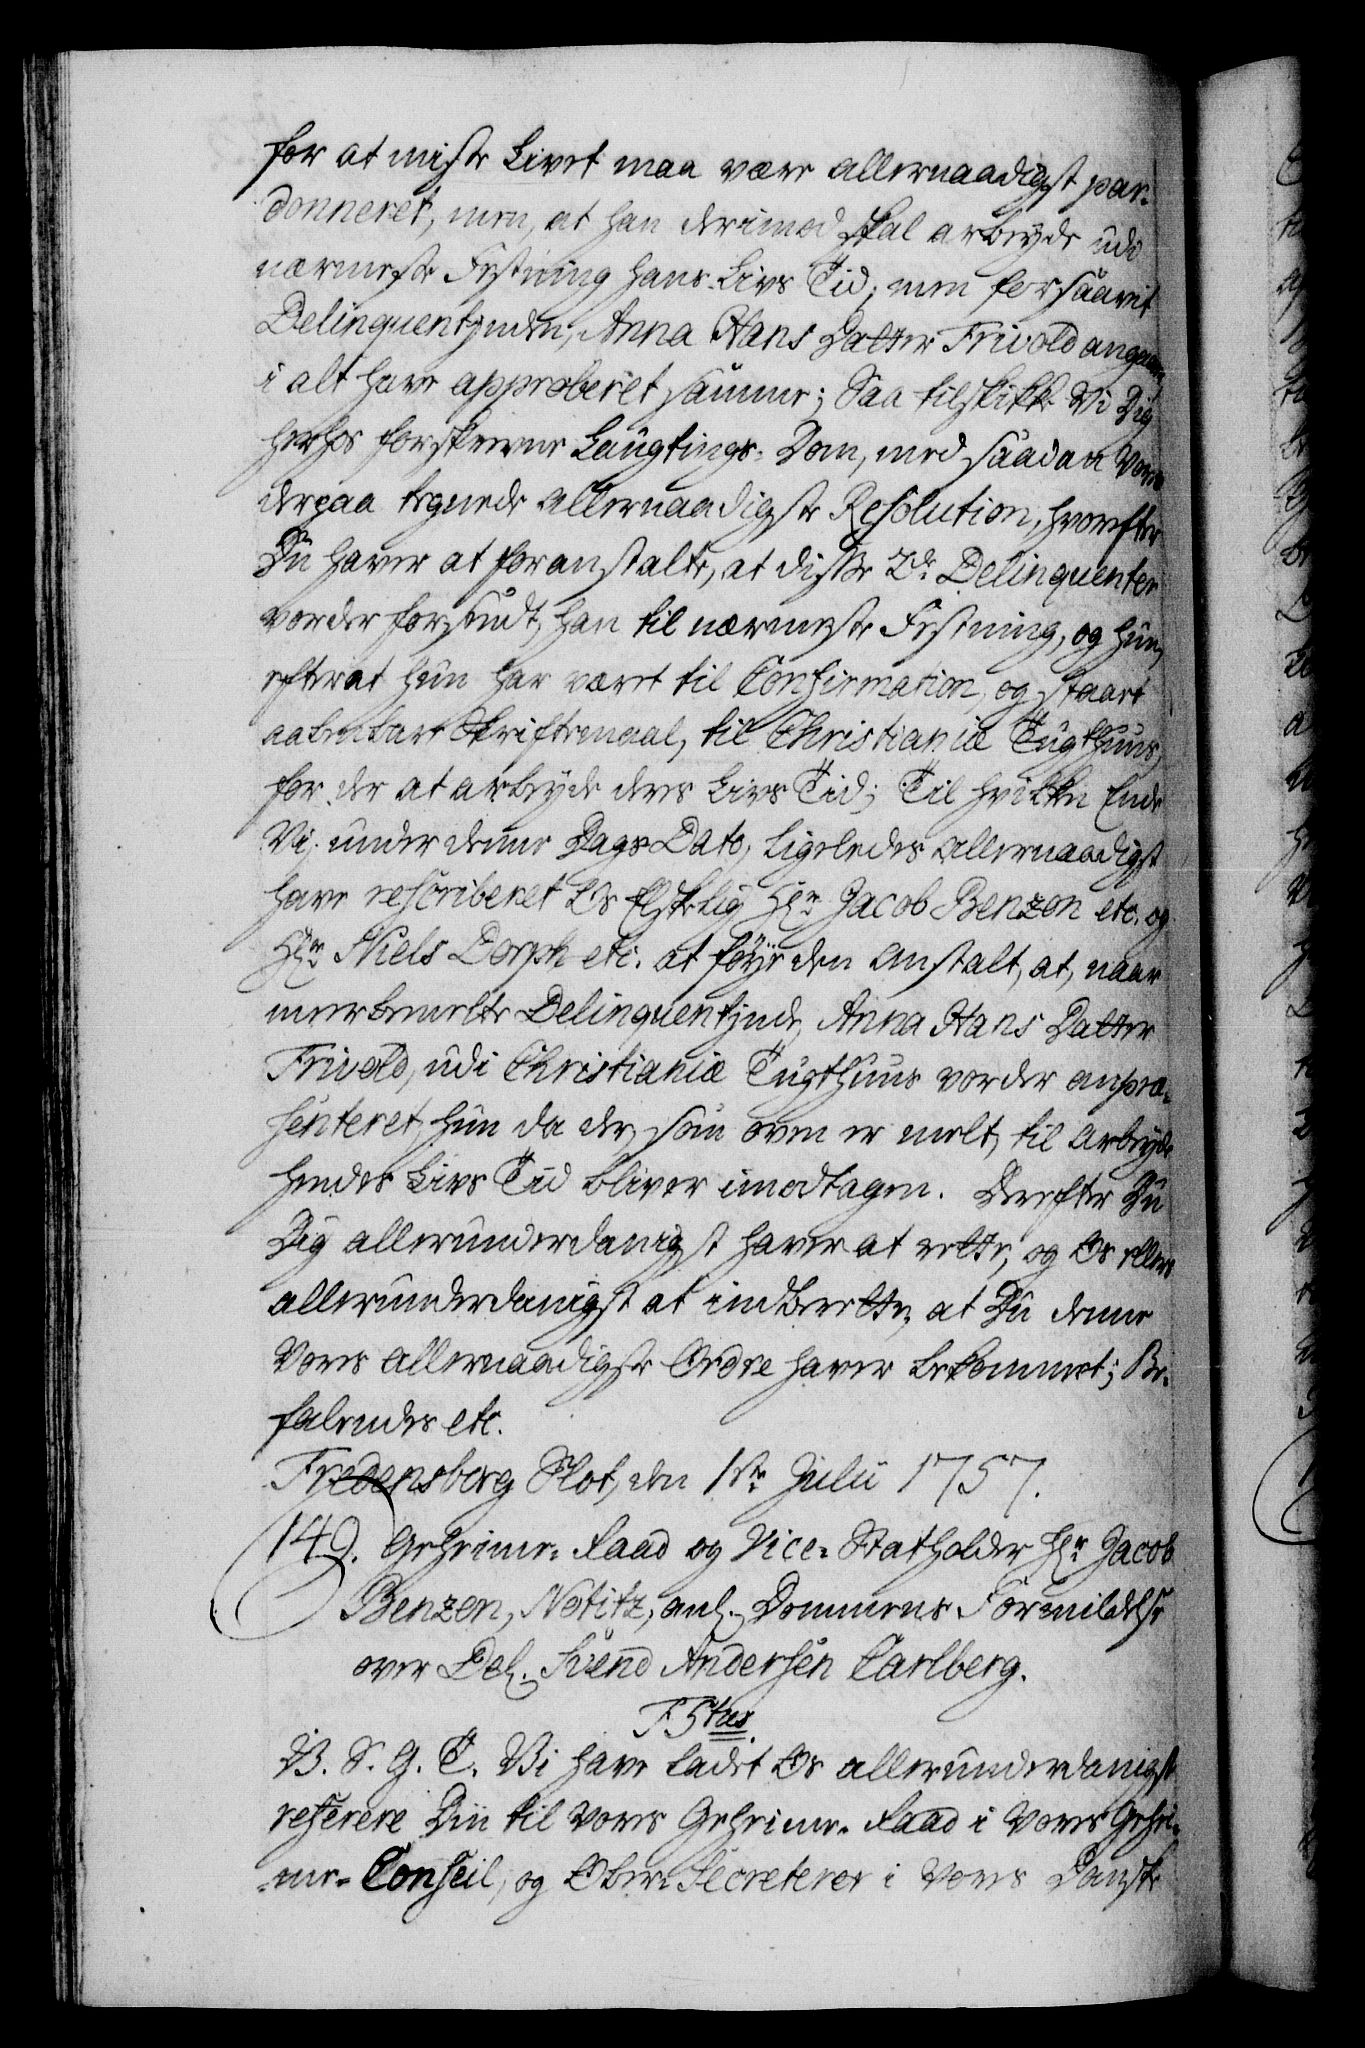 for at miste Livet maa være allernaadigst par-
donneret, men, at han derimod skal arbeyde udi
nærmeste Festning hans Livs Tid; men forsaavit
Delinquentinden, Anna Hans Datter Frivold angaaer,
i alt have approberet samme; Saa tilskikke Vi Dig
herhos forskrevne Laugtings-Dom, med saadan Vores
derpaa tegnede allernaadigste Resolution, hvorefter
Du haver at foranstalte, at disse 2de Delinquenter
vorder forsendt, han til nærmeste Festning, og hun,
efterat hun har været til Confirmation, og staaet
aabenbare Skriftemaal, til Christianiæ Tugthuus,
for der at arbeyde deres Livs Tid; Til hvilken Ende
Vi under denne Dags Dato, ligeledes allernaadigst
have rescriberet Os Elskelig Hr Jacob Benzon etc. og
Hr Niels Dorph etc. at føye den Anstalt, at, naar
meerbemelte Delinquentinde, Anna Hans Datter
Frivold, udi Christianiæ Tugthuus vorder anpræ-
senteret, hun da der, som oven er melt, til Arbeyde
hendes Livs Tid bliver imodtagen. Derefter Du
Dig allerunderdanigst haver at rette, og Os ellers
allerunderdanigst at indberette, at Du denne
Vores allernaadigste Ordre haver bekommet; Be-
falendes etc.
Fredensberg Slot, den 1ste Julii 1757.
149. Geheime-Raad og Vice-Statholder Hr Jacob
Benzon, Notitz, anl. Dommens Formildelse
over Del. Svend Andersen Carlberg.
F 5tus.
V. S. G. T. Vi have ladet Os allerunderdanigst
referere Din til Vores Geheime-Raad i Vores Gehei-
me-Conseil, og Ober-Secreterer i Vores Danske